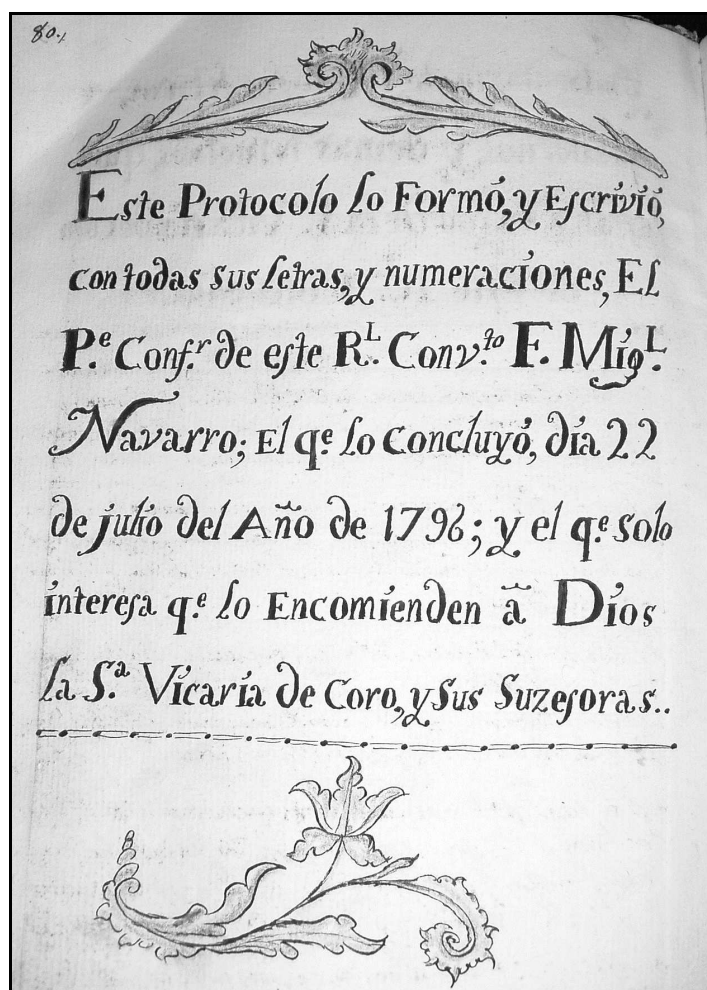 80.,
Este Protocolo lo Formó, y Escrivió,
con todas sus letras, y numeraciones, El
P.e Conf.r de este R.L Conv.to F. Mig.L
Navarro; El q.e lo Concluyó, día 22
de julio del Año de 1796; y el q.e solo
interesa q.e lo Encomienden ã Dios
la S.a Vicaría de Coro, y sus Suzesoras..